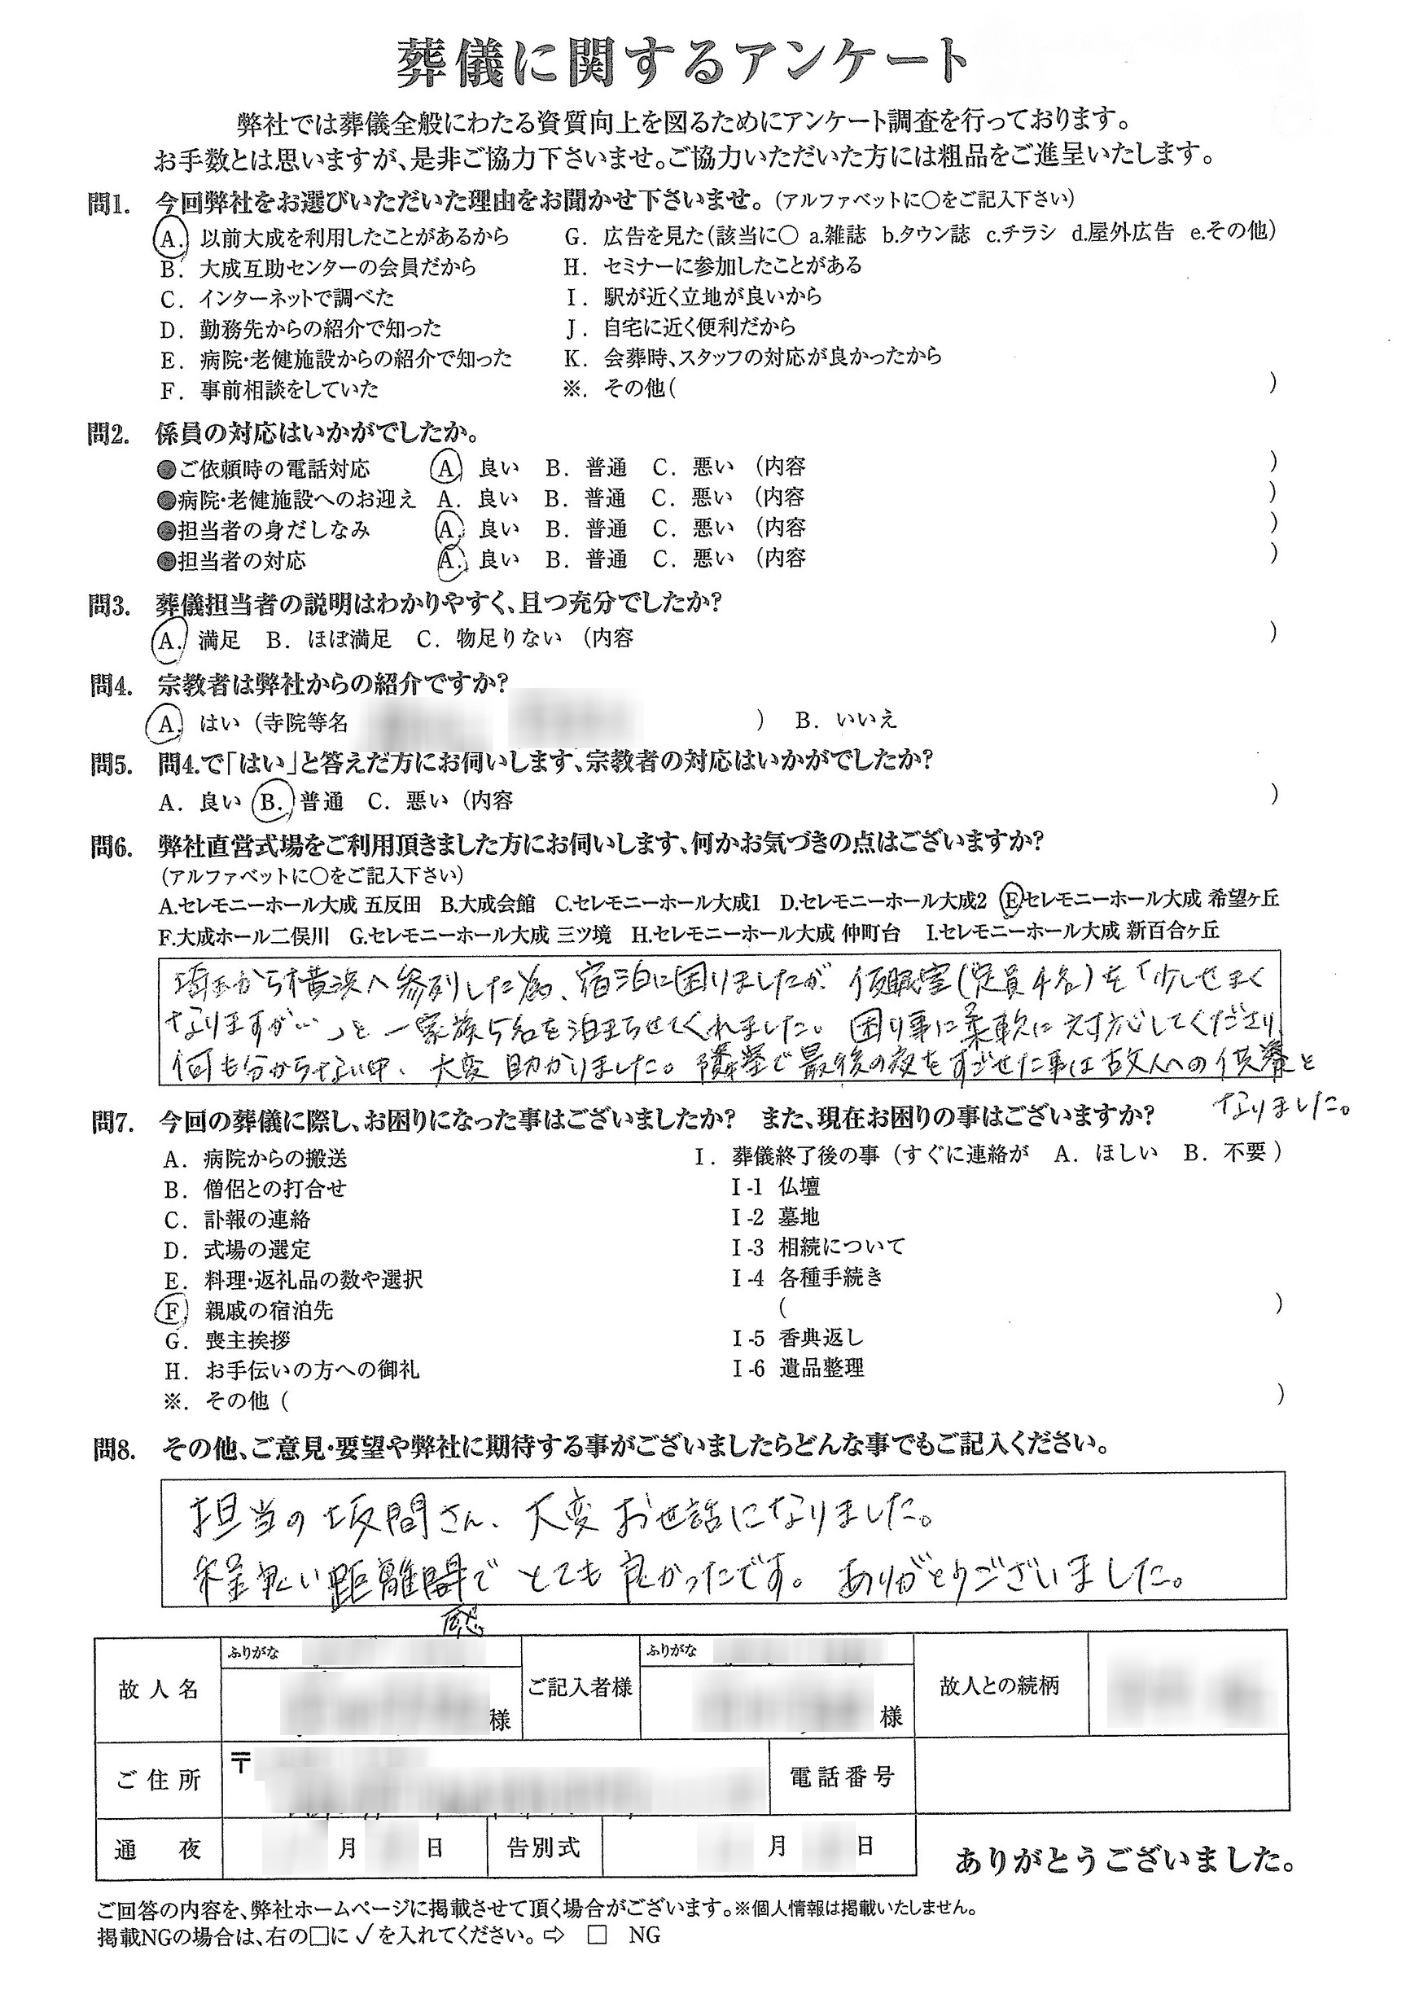 葬儀に関するアンケート
弊社では葬儀全般にわたる資質向上を図るためにアンケート調査を行っております。
お手数とは思いますが、是非ご協力下さいませ。ご協力いただいた方には粗品をご進呈いたします。
問1. 今回弊社をお選びいただいた理由をお聞かせ下さいませ。(アルファベットに〇をご記入下さい)
A. 以前大成を利用したことがあるから G. 広告を見た(該当に〇 a.雑誌 b.タウン誌 c.チラシ d.屋外広告 e.その他)
B. 大成互助センターの会員だから H. セミナーに参加したことがある
C. インターネットで調べた I. 駅が近く立地が良いから
D. 勤務先からの紹介で知った J. 自宅に近く便利だから
E. 病院・老健施設からの紹介で知った K. 会葬時、スタッフの対応が良かったから
F. 事前相談をしていた ※. その他( )
問2. 係員の対応はいかがでしたか。
●ご依頼時の電話対応 A. 良い B. 普通 C. 悪い (内容 )
●病院・老健施設へのお迎え A. 良い B. 普通 C. 悪い (内容 )
●担当者の身だしなみ A. 良い B. 普通 C. 悪い (内容 )
●担当者の対応 A. 良い B. 普通 C. 悪い (内容 )
問3. 葬儀担当者の説明はわかりやすく、且つ充分でしたか?
A. 満足 B. ほぼ満足 C. 物足りない (内容 )
問4. 宗教者は弊社からの紹介ですか?
A. はい (寺院等名 ) B. いいえ
問5. 問4.で「はい」と答えだ方にお伺いします、宗教者の対応はいかがでしたか?
A. 良い B. 普通 C. 悪い (内容 )
問6. 弊社直営式場をご利用頂きました方にお伺いします、何かお気づきの点はございますか?
(アルファベットに〇をご記入下さい)
A.セレモニーホール大成 五反田 B.大成会館 C.セレモニーホール大成1 D.セレモニーホール大成2 E.セレモニーホール大成 希望ヶ丘
F.大成ホール二俣川 G.セレモニーホール大成 三ツ境 H.セレモニーホール大成 仲町台 I.セレモニーホール大成 新百合ヶ丘
埼玉から横浜へ参列した為、宿泊に困りましたが、仮眠室(定員4名)を「少しせまく
なりますが…」と一家族5名を泊まらせてくれました。困り事に柔軟に対応してくださり、
何も分からない中、大変助かりました。隣室で最後の夜をすごせた事は故人への供養と
なりました。
問7. 今回の葬儀に際し、お困りになった事はございましたか? また、現在お困りの事はございますか?
A. 病院からの搬送 I. 葬儀終了後の事 (すぐに連絡が A. ほしい B. 不要 )
B. 僧侶との打合せ I-1 仏壇
C. 訃報の連絡 I-2 墓地
D. 式場の選定 I-3 相続について
E. 料理・返礼品の数や選択 I-4 各種手続き
F. 親戚の宿泊先 ( )
G. 喪主挨拶 I-5 香典返し
H. お手伝いの方への御礼 I-6 遺品整理
※. その他 ( )
問8. その他、ご意見・要望や弊社に期待する事がございましたらどんな事でもご記入ください。
担当の坂間さん、大変お世話になりました。
程良い距離間でとても良かったです。ありがとうございました。
感
ふりがな ふりがな
故人名 様 ご記入者様 様 故人との続柄
ご住所 〒 電話番号
通夜 月 日 告別式 月 日
ありがとうございました。
ご回答の内容を、弊社ホームページに掲載させて頂く場合がございます。※個人情報は掲載いたしません。
掲載NGの場合は、右の□に✓を入れてください。⇨ □ NG